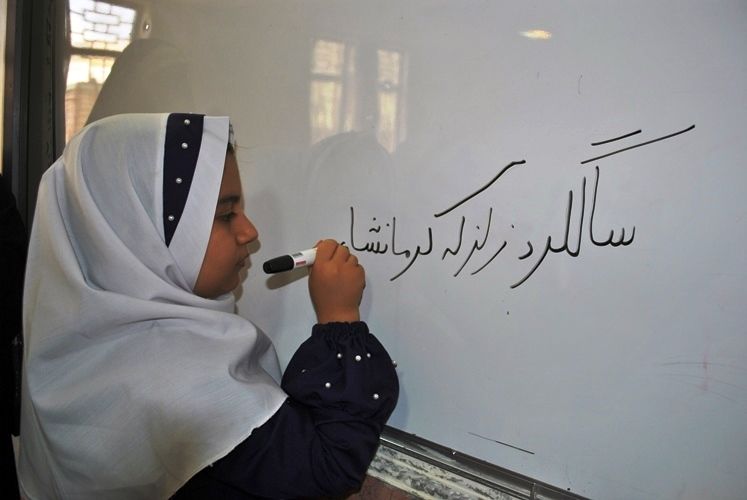 سالگرد زلزله کرمانشاه